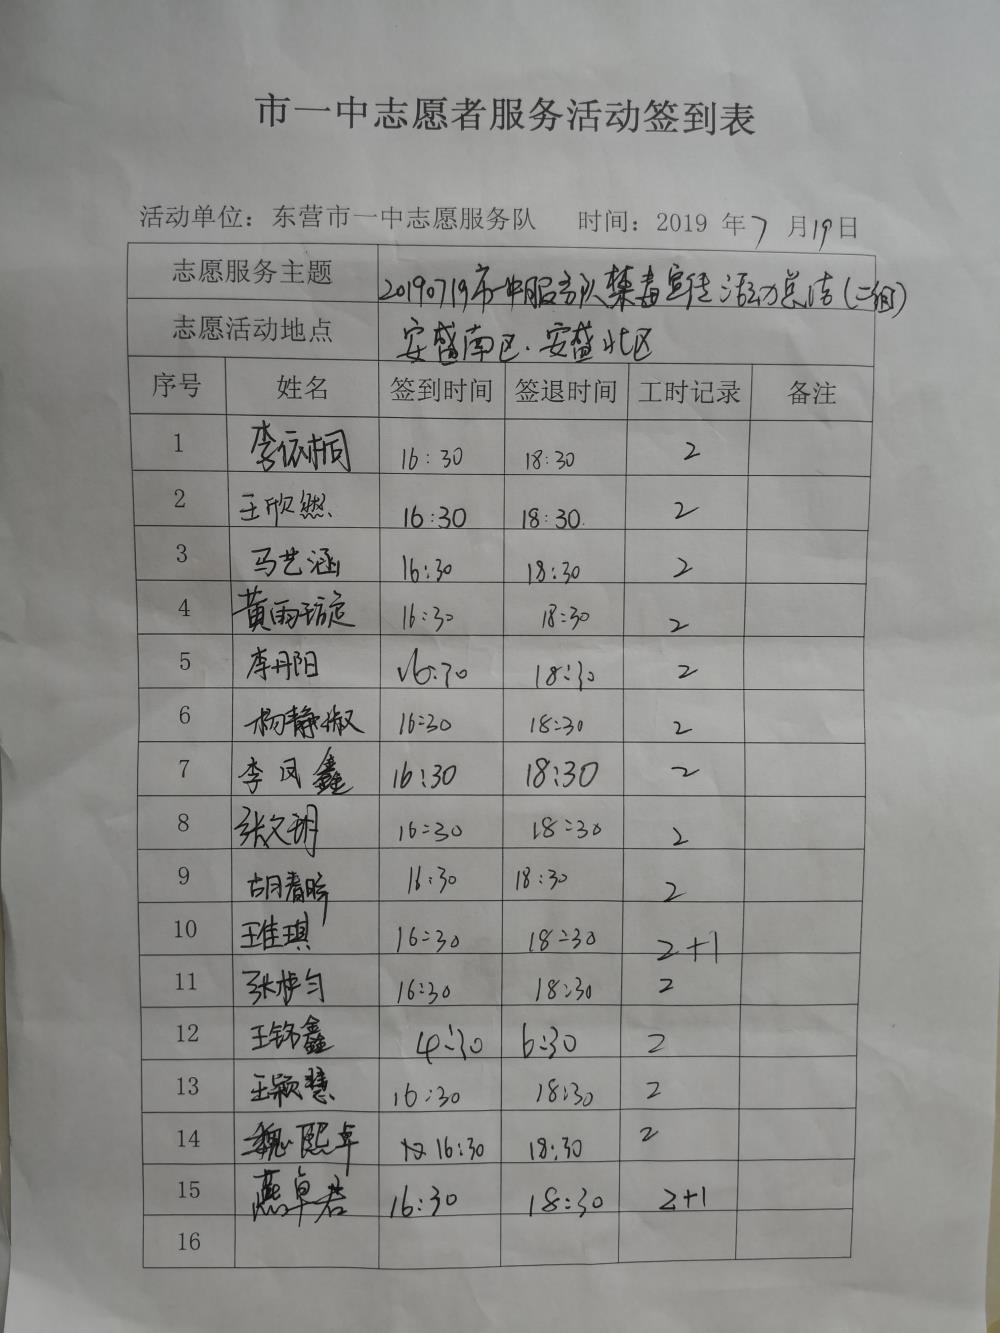 市一中志愿者服务活动签到表
活动单位：东营市一中志愿服务队 时间：2019 年 7 月 19 日
志愿服务主题 20190719市一中服务队禁毒宣传活动总结(二组)
志愿活动地点 安盛南区.安盛北区
序号 姓名 签到时间 签退时间 工时记录 备注
1 李依桐 16:30 18:30 2
2 王欣然 16:30 18:30 2
3 马艺涵 16:30 18:30 2
4 黄雨璇 16:30 18:30 2
5 李丹阳 16:30 18:30 2
6 杨静淑 16:30 18:30 2
7 李凤鑫 16:30 18:30 2
8 张文玥 16:30 18:30 2
9 胡春晖 16:30 18:30 2
10 王佳琪 16:30 18:30 2+1
11 张梓匀 16:30 18:30 2
12 王锦鑫 4:30 6:30 2
13 王颖慧 16:30 18:30 2
14 魏熙卓 16:30 18:30 2
15 燕卓君 16:30 18:30 2+1
16